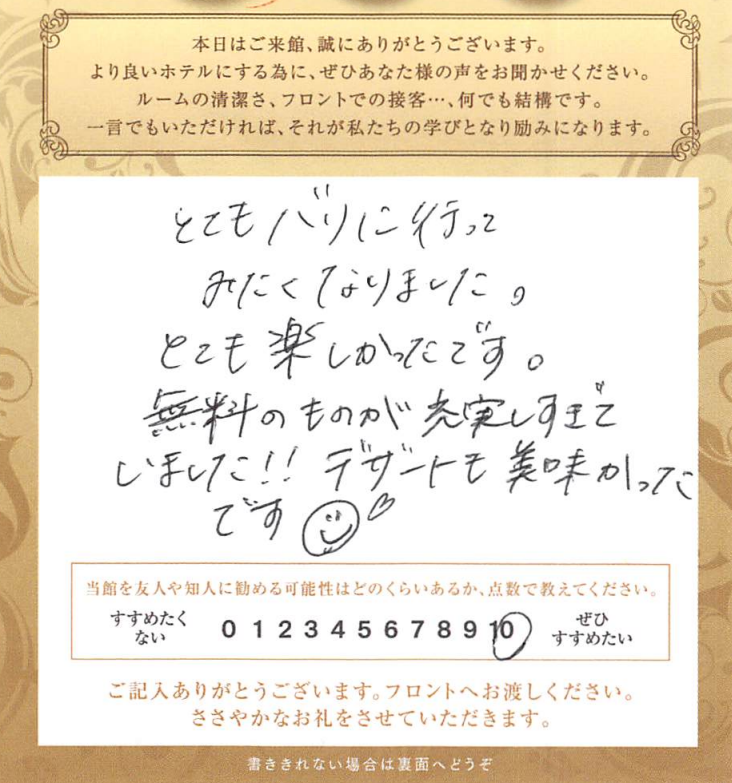 本日はご来館、誠にありがとうございます。
より良いホテルにする為に、ぜひあなた様の声をお聞かせください。
ルームの清潔さ、フロントでの接客…、何でも結構です。
一言でもいただければ、それが私たちの学びとなり励みになります。
とてもバリに行って
みたくなりました。
とても楽しかったです。
無料のものが充実しすぎて
いました!! デザートも美味かった
です
当館を友人や知人に勧める可能性はどのくらいあるか、点数で教えてください。
すすめたく
ない
0 1 2 3 4 5 6 7 8 9 10
ぜひ
すすめたい
ご記入ありがとうございます。フロントへお渡しください。
ささやかなお礼をさせていただきます。
書ききれない場合は裏面へどうぞ